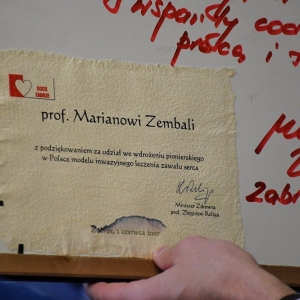 wsparły
próbą i
prof. Marianowi Zembali
z podziękowaniem za udział we wdrożeniu pionierskiego
w Polsce modelu inwazyjnego leczenia zawału serca
Minister Zdrowia
prof. Zbigniew Religa
1 czerwca 2007
Zabr